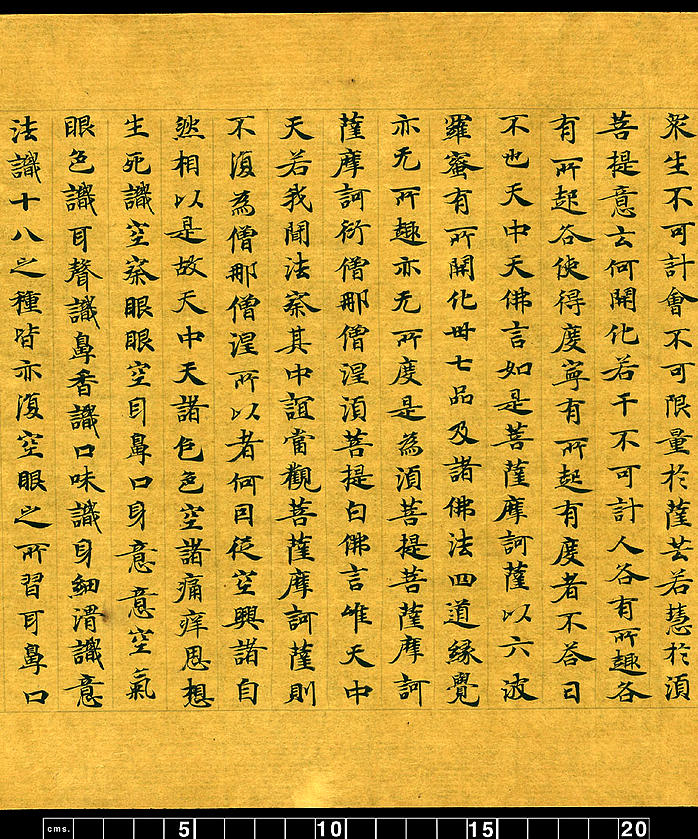 衆生不可計會不可限量於薩芸若慧於湏
菩提意云何開化若干不可計人各有所趣各
有所趣各使得度寧有所趣有度者不荅曰
不也天中天佛言如是菩薩摩訶薩以六波
羅蜜有所開化卅七品及諸佛法四道緣覺
亦无所趣亦无所度是為湏菩提菩薩摩訶
薩摩訶衍僧那僧涅湏菩提白佛言唯天中
天若我聞法察其中誼當觀菩薩摩訶薩則
不復為僧那僧涅所以者何因従空興諸自
然相以是故天中天諸色色空諸痛痒思想
生死識空察眼眼空耳鼻口身意意空氣
眼色識耳聲識鼻香識口味識身細滑識意
法識十八之種皆亦復空眼之所習耳鼻口
cms. 5 10 15 20